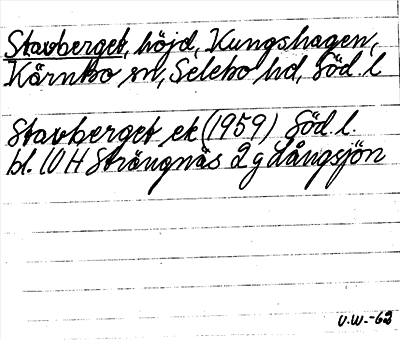 Stavberget, höjd, Kungshagen,
Kärnbo sn, Selebo hd, Söd. l.
Stavberget ek (1959) Söd. l.
bl. 10 H Strängnäs 2 g Långsjön
U.W.-62